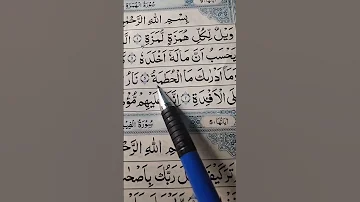 سُوْرَةُ الْهُمَزَةِ
بِسْمِ اللّٰهِ الرَّحْمٰ
وَيْلٌ لِّكُلِّ هُمَزَةٍ لُّمَزَةِ
يَحْسَبُ اَنَّ مَالَهٗۤ اَخْلَدَهٗ
وَمَاۤ اَدْرٰىكَ مَا الْحُطَمَةُ نَارُ
عَلَى الْاَفْـِٕدَةِ اِنَّهَا عَلَيْهِمْ مُّؤْ
سُوْرَةُ الْفِيْ
بِسْمِ اللّٰهِ الرَّحْ
تَرَ كَيْفَ رَبُّكَ بِاَصْحٰ